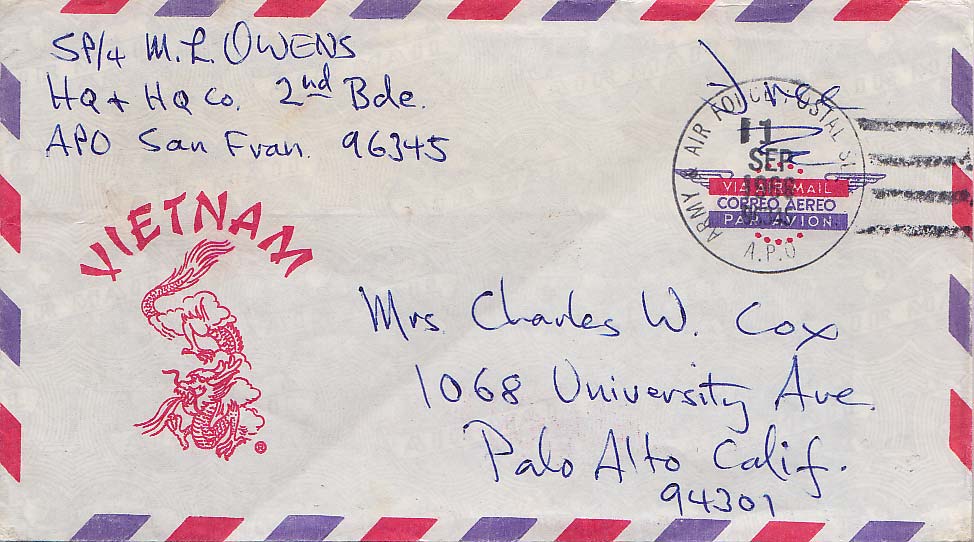 SP/4 M.L. OWENS
HQ + HQ Co. 2nd Bde.
APO San Fran. 96345
Free
ARMY & AIR FORCE POSTAL
11
SEP
A.P.O
VIA AIR MAIL
CORREO AEREO
PAR AVION
VIETNAM
®
Mrs. Charles W. Cox
1068 University Ave.
Palo Alto Calif.
94301